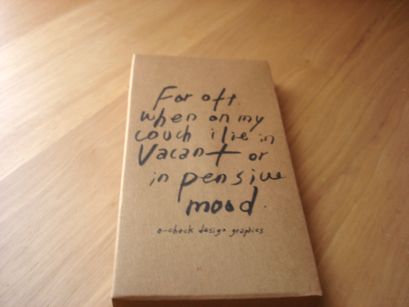 For oft
when on my
couch i lie in
Vacant or
in pensive
mood.
o-check design graphics